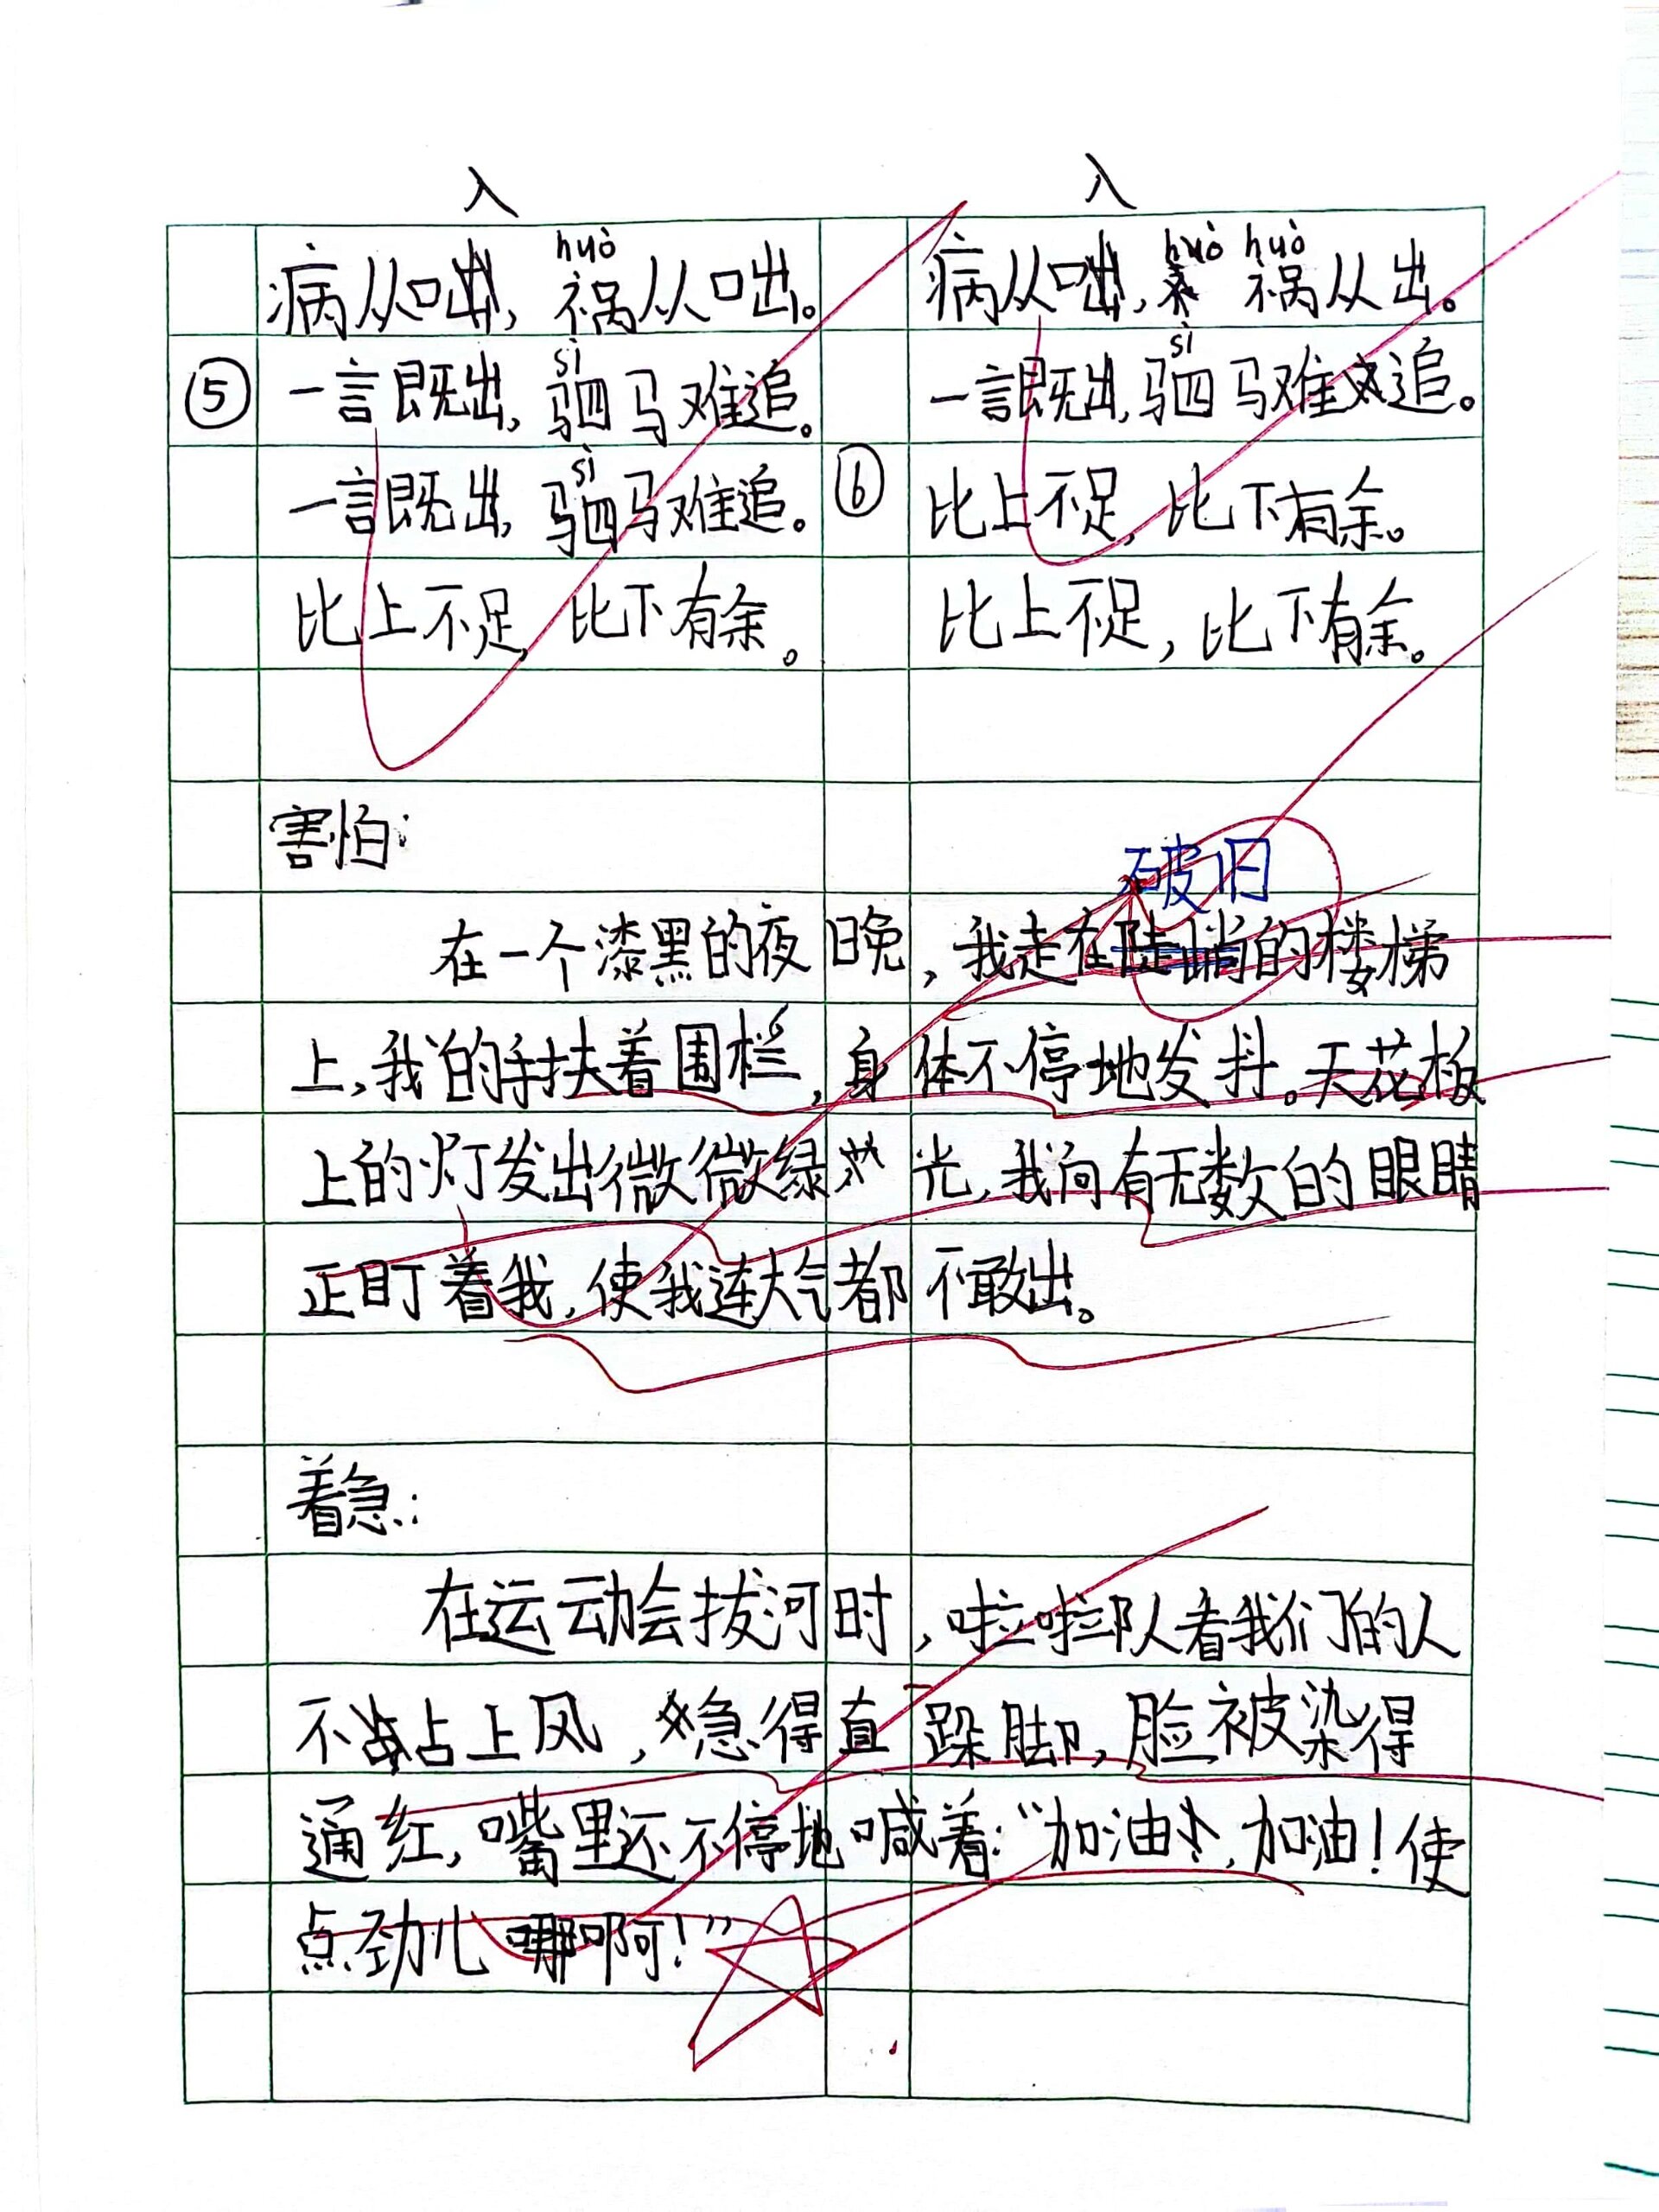 入 入
huò huò huò
病从口出, 祸从口出。 病从口出, 祸从出。
sì sì
⑤ 一言既出, 驷马难追。 一言既出, 驷马难追。
sì
一言既出, 驷马难追。 ⑥ 比上不足, 比下有余。
比上不足, 比下有余。 比上不足, 比下有余。
害怕:
破旧
在一个漆黑的夜晚, 我走在陡峭的楼梯
上, 我的手扶着围栏, 身体不停地发抖。天花板
上的灯发出微微绿光, 我向有无数的眼睛
正盯着我, 使我连大气都不敢出。
着急:
在运动会拔河时, 啦啦队看我们的人
不占上风, 急得直跺脚, 脸被染得
通红, 嘴里还不停地喊着:“加油, 加油!使
点劲儿啊!”